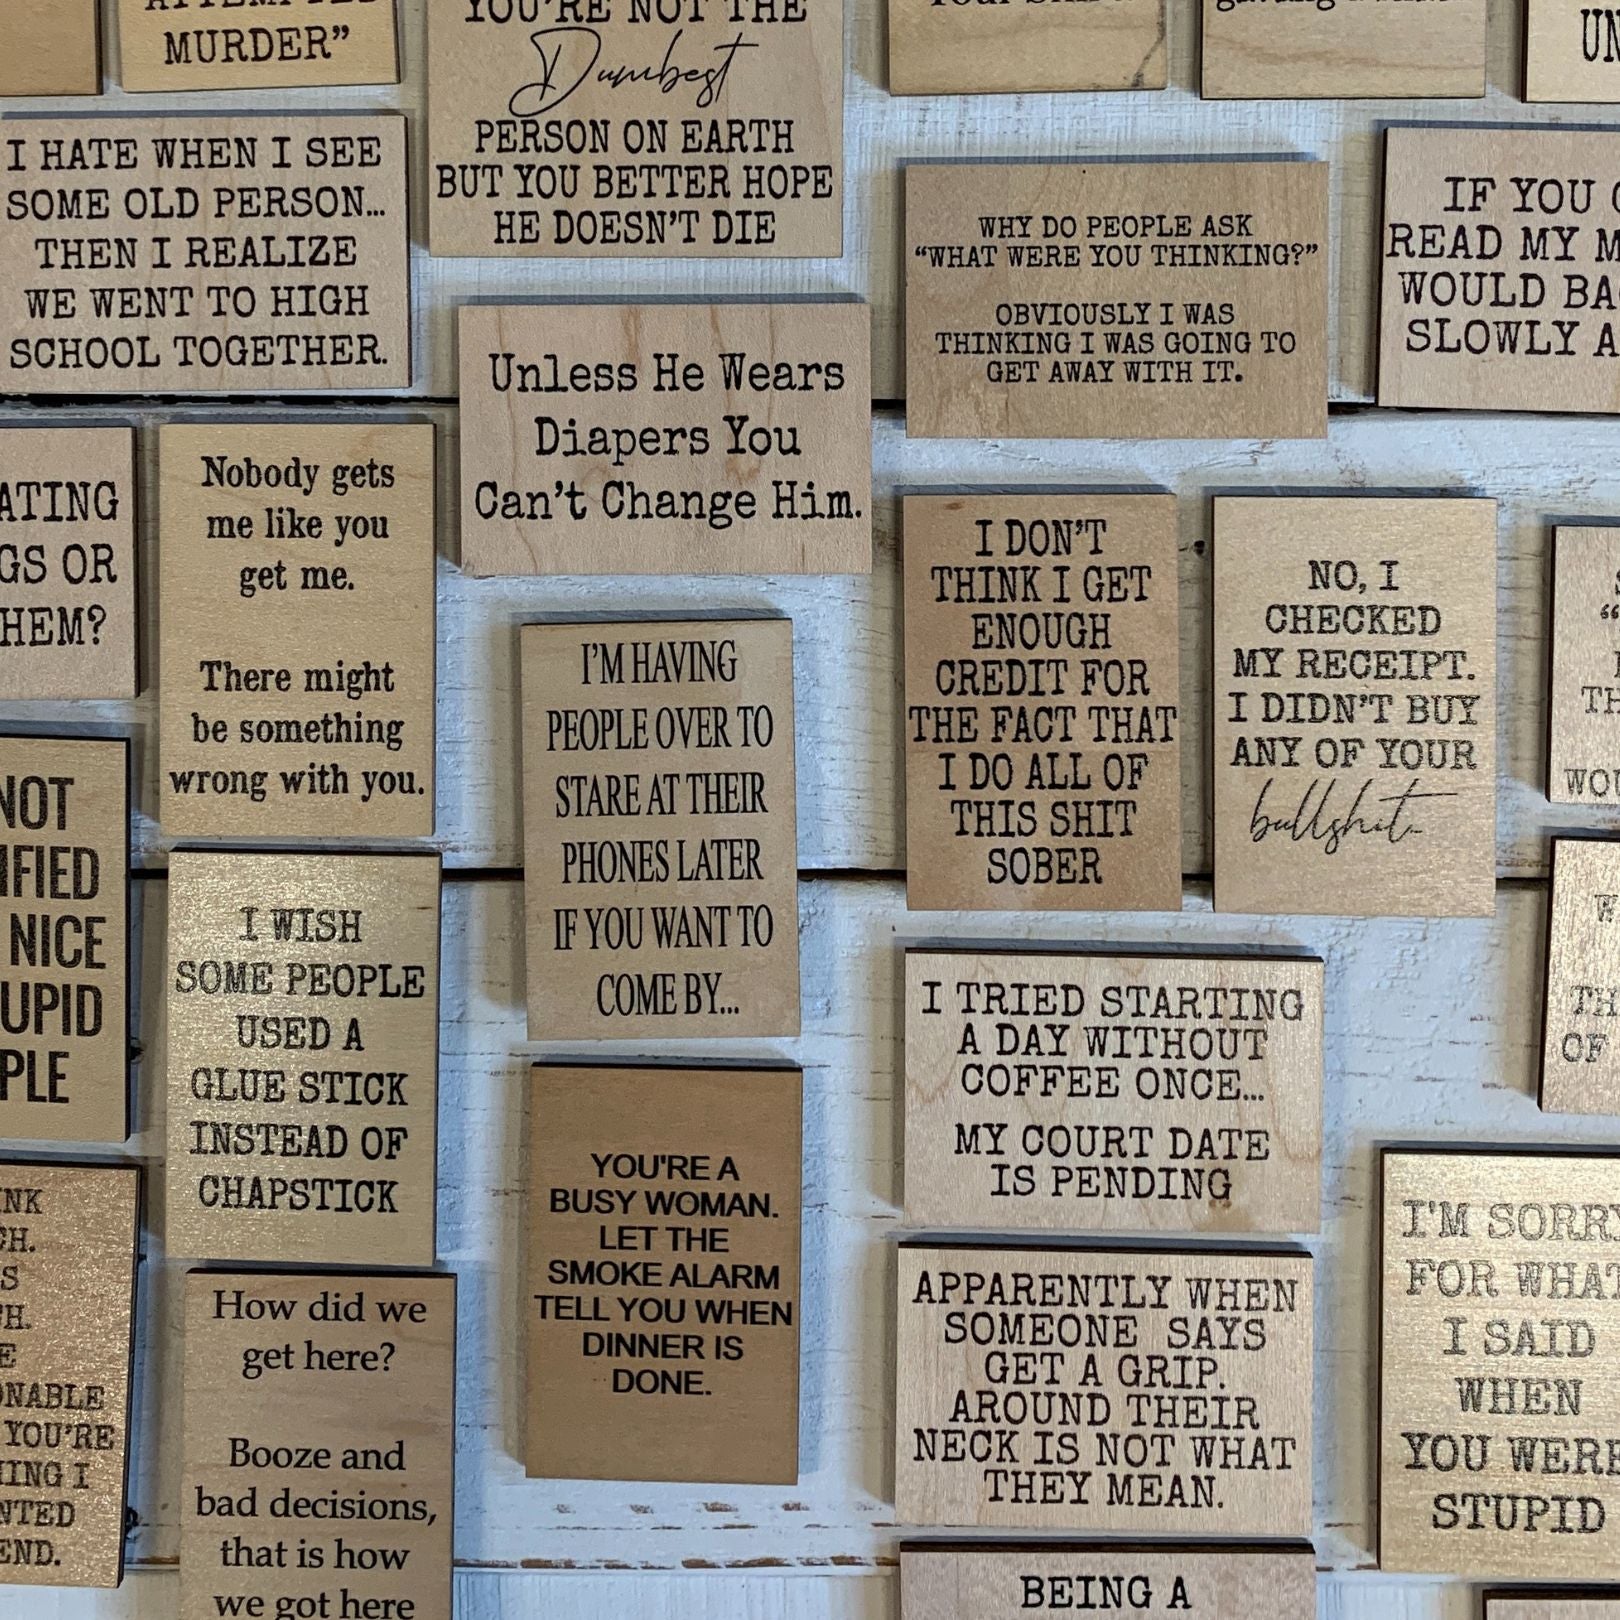 MURDER”
YOU'RE NOT THE
Dumbest
PERSON ON EARTH
BUT YOU BETTER HOPE
HE DOESN'T DIE
UN
I HATE WHEN I SEE
SOME OLD PERSON...
THEN I REALIZE
WE WENT TO HIGH
SCHOOL TOGETHER.
WHY DO PEOPLE ASK
“WHAT WERE YOU THINKING?”
OBVIOUSLY I WAS
THINKING I WAS GOING TO
GET AWAY WITH IT.
IF YOU
READ MY
WOULD
SLOWLY
Unless He Wears
Diapers You
Can't Change Him.
ATING
GS OR
HEM?
Nobody gets
me like you
get me.
There might
be something
wrong with you.
I DON'T
THINK I GET
ENOUGH
CREDIT FOR
THE FACT THAT
I DO ALL OF
THIS SHIT
SOBER
NO, I
CHECKED
MY RECEIPT.
I DIDN'T BUY
ANY OF YOUR
bullshit.
I'M HAVING
PEOPLE OVER TO
STARE AT THEIR
PHONES LATER
IF YOU WANT TO
COME BY...
NOT
IFIED
NICE
UPID
PLE
I WISH
SOME PEOPLE
USED A
GLUE STICK
INSTEAD OF
CHAPSTICK
I TRIED STARTING
A DAY WITHOUT
COFFEE ONCE...
MY COURT DATE
IS PENDING
TH
OF
YOU'RE A
BUSY WOMAN.
LET THE
SMOKE ALARM
TELL YOU WHEN
DINNER IS
DONE.
INK
CH.
S
H.
E
ONABLE
YOU'RE
HING I
NTED
END.
How did we
get here?
Booze and
bad decisions,
that is how
we got here
APPARENTLY WHEN
SOMEONE SAYS
GET A GRIP.
AROUND THEIR
NECK IS NOT WHAT
THEY MEAN.
I'M SORRY
FOR WHAT
I SAID
WHEN
YOU WERE
STUPID
BEING A